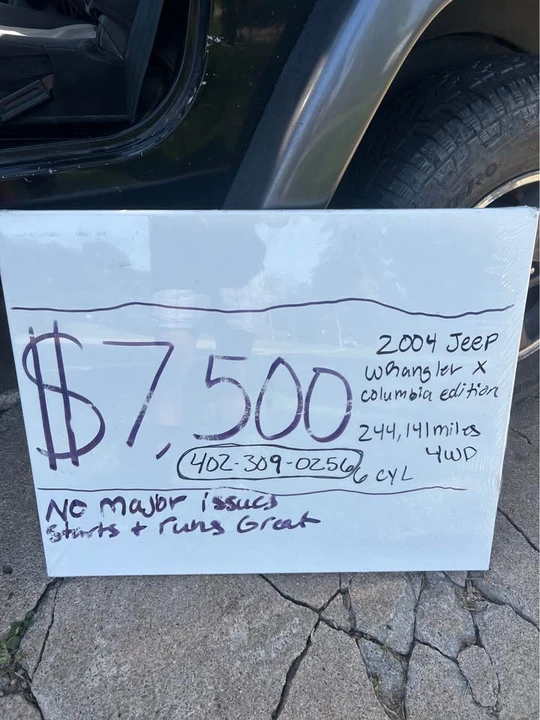 $7,500
2004 Jeep
Wrangler X
columbia edition
244,141 miles
4WD
6 CYL
402-309-0256
No major issues
Starts + runs Great